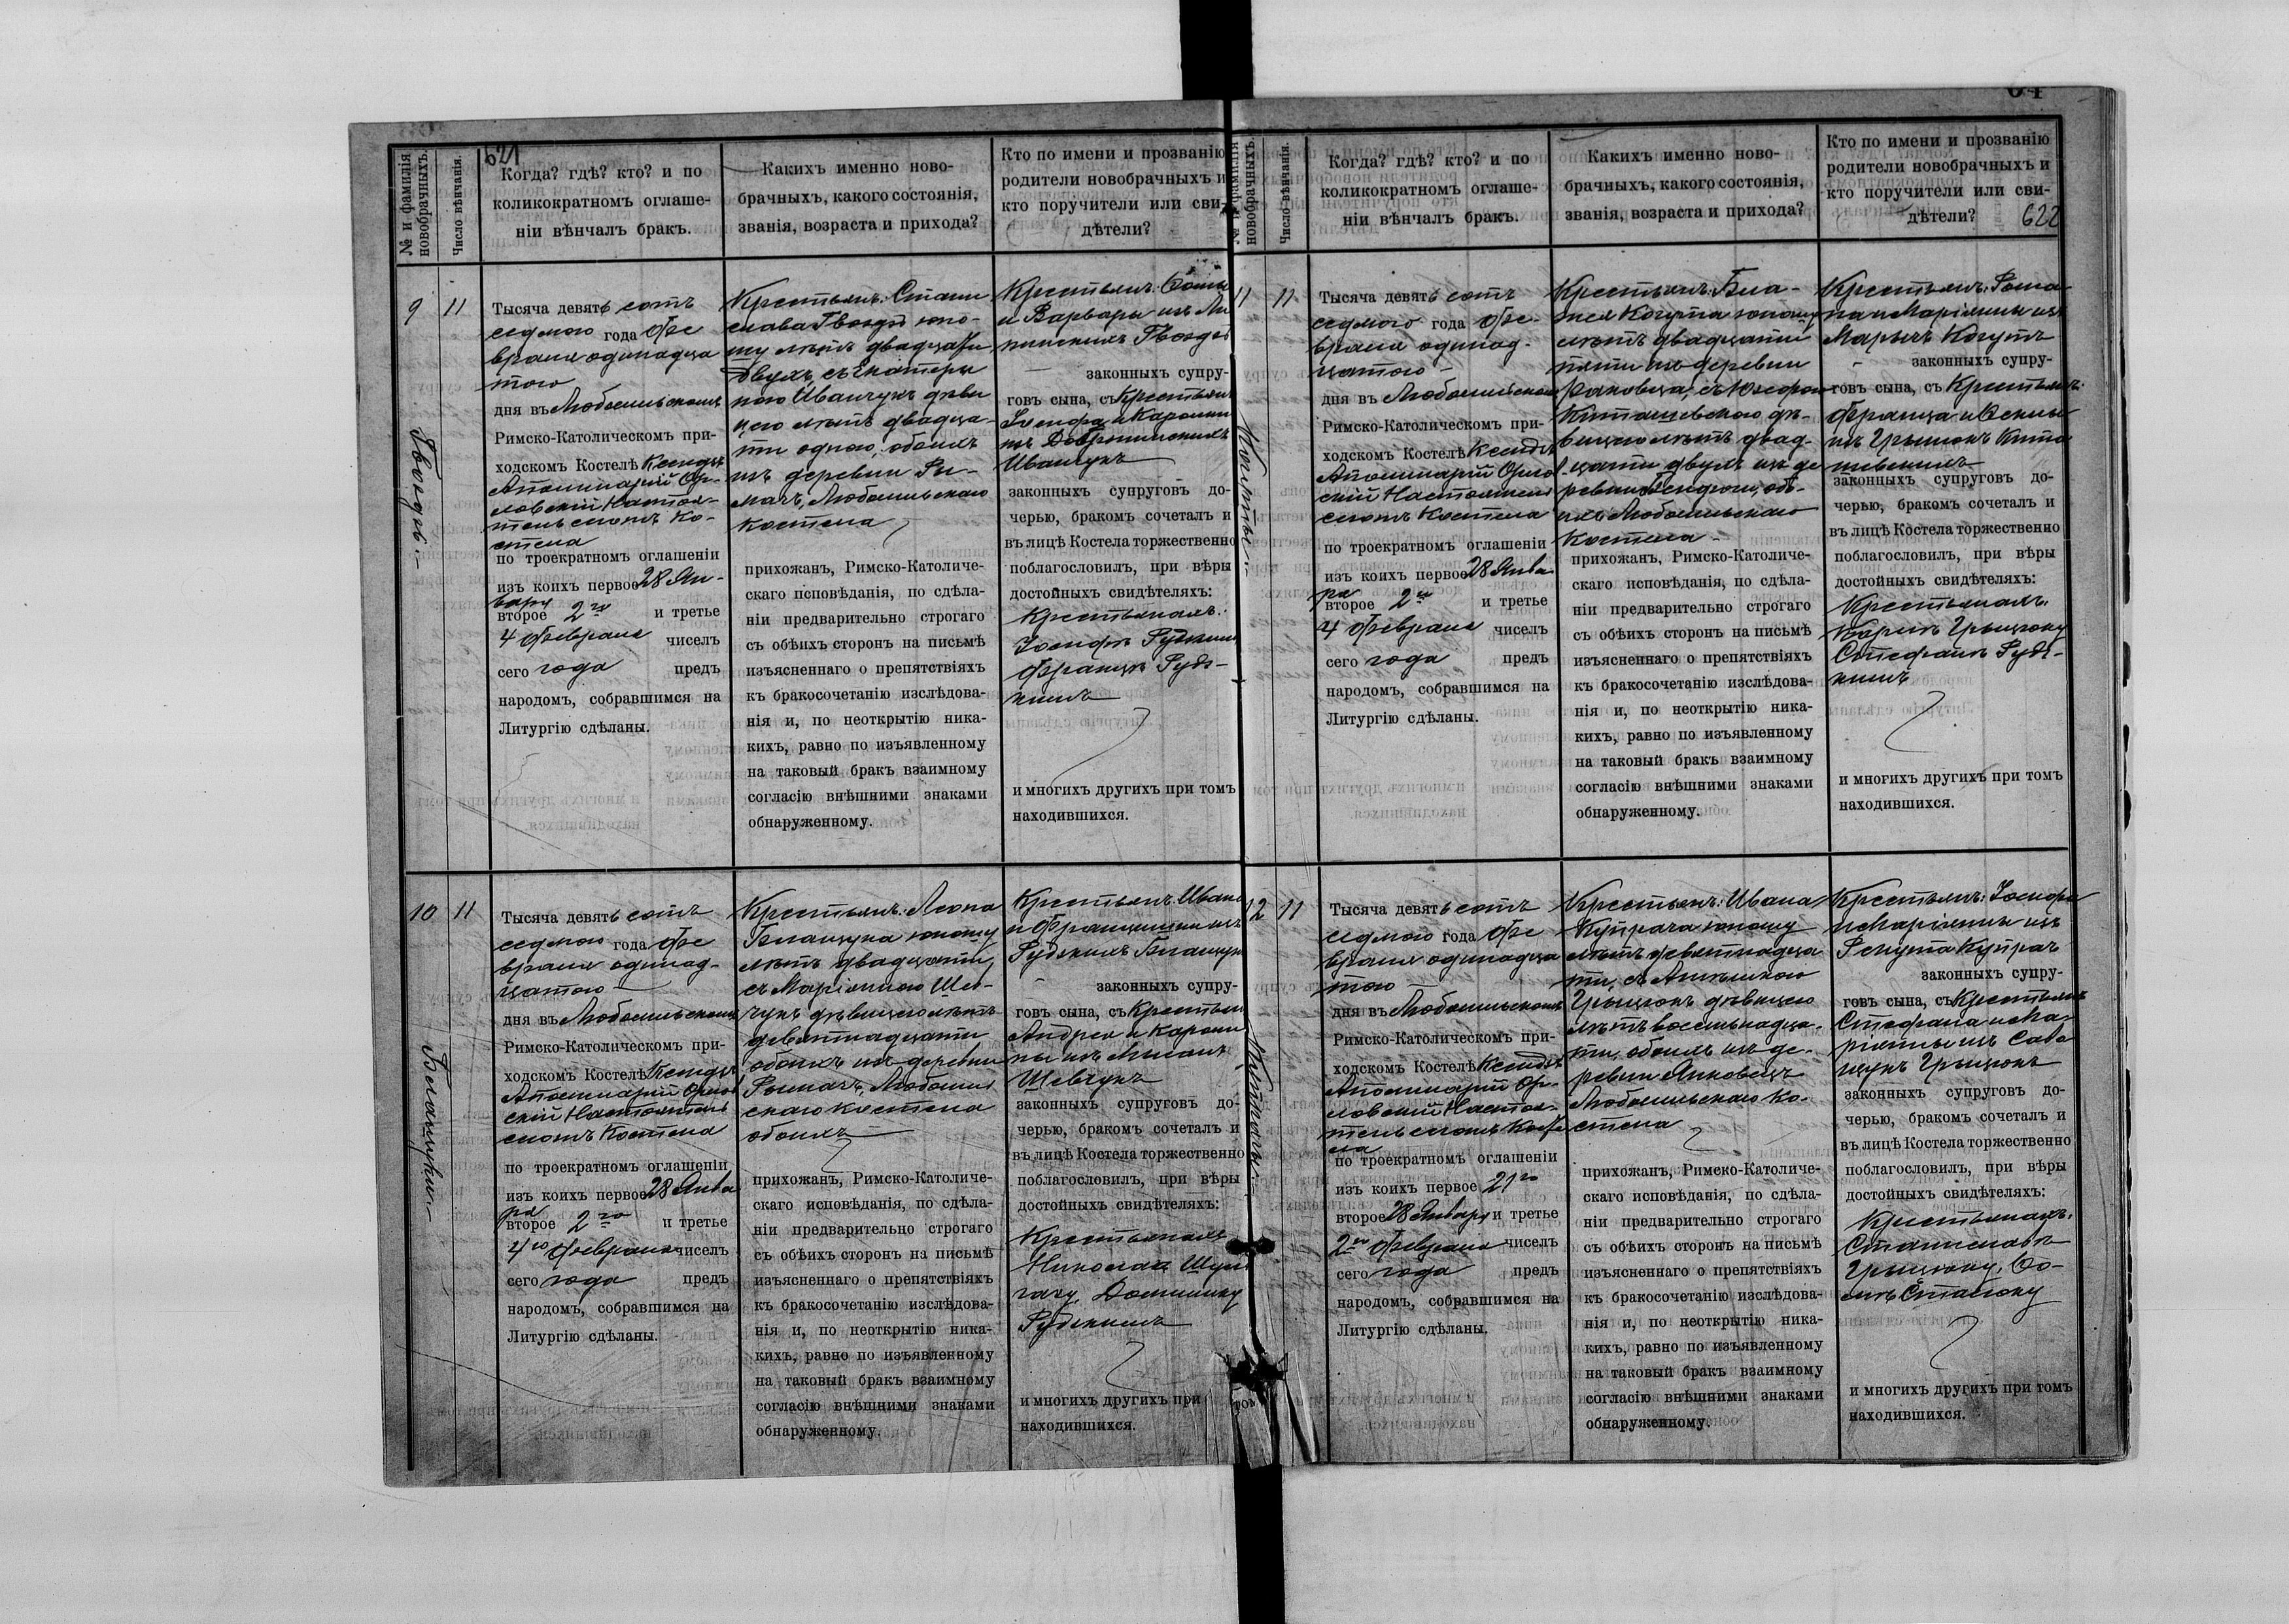 621
№ и фамилія новобрачныхъ.
Число вѣнчанія.
Когда? гдѣ? кто? и по
коликократномъ оглаше-
ніи вѣнчалъ бракъ.
Какихъ именно ново-
брачныхъ, какого состоянія,
званія, возраста и прихода?
Кто по имени и прозванію
родители новобрачныхъ и
кто поручители или сви-
дѣтели?
9
11
Тысяча девять сотъ
седмого года Фе
враля одинадца
того
дня въ Любомльскомъ
Римско-Католическомъ при-
ходскомъ Костелѣ Ксендзъ
Аполинарій Ор-
ловскій Настоя-
тель сего Ко-
стела
по троекратномъ оглашеніи
изъ коихъ первое 28 Ян-
варя
второе 2го и третье
4 Февраля чиселъ
сего года предъ
народомъ, собравшимся на
Литургію сдѣланы.
Крестьянъ: Стани
слава Гвоздя юно-
шу лѣтъ двадцати
двухъ, съ Екатери
ною Иванчукъ дѣви
цею лѣтъ двадца-
ти одного, обоихъ
изъ деревни Ры-
мачъ, Любомльскаго
Костела
прихожанъ, Римско-Католиче-
скаго исповѣданія, по сдѣла-
ніи предварительно строгаго
съ обѣихъ сторонъ на письмѣ
изъясненнаго о препятствіяхъ
къ бракосочетанію изслѣдова-
нія и, по неоткрытію ника-
кихъ, равно по изъявленному
на таковый бракъ взаимному
согласію внѣшними знаками
обнаруженному.
Крестьянъ: Ѳомы
и Варвары изъ
Гвоздь
законныхъ супру-
говъ сына, съ Крестьянъ
Іосифа и Кароли
изъ
Иванчукъ
законныхъ супруговъ до-
черью, бракомъ сочеталъ и
въ лицѣ Костела торжественно
поблагословилъ, при вѣры
достойныхъ свидѣтеляхъ:
Крестьянахъ:
Іосифѣ
Францѣ Рудз-
кимъ
и многихъ другихъ при томъ
находившихся.
10
11
Тысяча девять сотъ
седмого года Фе
враля одинад-
цатого
дня въ Любомльскомъ
Римско-Католическомъ при-
ходскомъ Костелѣ Ксендзъ
Аполинарій Орлов
скій Настоятель
Костела
по троекратномъ оглашеніи
изъ коихъ первое 28 Янва
ря
второе 2го и третье
4го Февраля чиселъ
сего года предъ
народомъ, собравшимся на
Литургію сдѣланы.
Крестьянъ: Леона
Билащука юношу
лѣтъ двадцати,
съ Маріянною Шев-
чукъ дѣвицею лѣтъ
девятнадцати
обоихъ изъ деревни
Рымачъ, Любомль
скаго Костела
обоихъ
прихожанъ, Римско-Католиче-
скаго исповѣданія, по сдѣла-
ніи предварительно строгаго
съ обѣихъ сторонъ на письмѣ
изъясненнаго о препятствіяхъ
къ бракосочетанію изслѣдова-
нія и, по неоткрытію ника-
кихъ, равно по изъявленному
на таковый бракъ взаимному
согласію внѣшними знаками
обнаруженному.
Крестьянъ: Ивана
и Францишки изъ
Рудскихъ Билащукъ
законныхъ супру-
говъ сына, съ Крестьянъ
Андрея и Кароли
ны изъ
Шевчукъ
законныхъ супруговъ до-
черью, бракомъ сочеталъ и
въ лицѣ Костела торжественно
поблагословилъ, при вѣры
достойныхъ свидѣтеляхъ:
Крестьянахъ
Николаѣ
Доминику
Рудзкимъ
и многихъ другихъ при
находившихся.
новобрачныхъ.
Число вѣнчанія.
Когда? гдѣ? кто? и по
коликократномъ оглаше-
ніи вѣнчалъ бракъ.
Какихъ именно ново-
брачныхъ, какого состоянія,
званія, возраста и прихода?
Кто по имени и прозванію
родители новобрачныхъ и
кто поручители или сви-
дѣтели?
622
11
11
Тысяча девять сотъ
седмого года Фе-
враля одинад-
цатого
дня въ Любомльскомъ
Римско-Католическомъ при-
ходскомъ Костелѣ Ксендзъ
Аполинарій Орлов
скій Настоятель
Костела
по троекратномъ оглашеніи
изъ коихъ первое 28 Янва
ря
второе 2го и третье
4 Февраля чиселъ
сего года предъ
народомъ, собравшимся на
Литургію сдѣланы.
Крестьянъ: Бла-
жея Когута юношу
лѣтъ двадцати
пяти изъ деревни
съ Юзефою
Киташевскою дѣ-
вицею лѣтъ двад-
цати двухъ изъ де
ревни обо-
ихъ Любомльскаго
Костела
прихожанъ, Римско-Католиче-
скаго исповѣданія, по сдѣла-
ніи предварительно строгаго
съ обѣихъ сторонъ на письмѣ
изъясненнаго о препятствіяхъ
къ бракосочетанію изслѣдова-
нія и, по неоткрытію ника-
кихъ, равно по изъявленному
на таковый бракъ взаимному
согласію внѣшними знаками
обнаруженному.
Крестьянъ: Рома
на и Маріянны изъ
Когутъ
законныхъ супру-
говъ сына, съ Крестьянъ:
Франца и
изъ Грыцюкъ Кита
шевскихъ
законныхъ супруговъ до-
черью, бракомъ сочеталъ и
въ лицѣ Костела торжественно
поблагословилъ, при вѣры
достойныхъ свидѣтеляхъ:
Крестьянахъ:
Грыцюку
Стефанѣ Рудз-
кимъ
и многихъ другихъ при томъ
находившихся.
12
11
Тысяча девять сотъ
седмого года Фе
враля одинадца
того
дня въ Любомльскомъ
Римско-Католическомъ при-
ходскомъ Костелѣ Ксендзъ
Аполинарій Ор-
ловскій Настоя-
тель Косте
ла
по троекратномъ оглашеніи
изъ коихъ первое 21го
второе 28 Января и третье
2го Февраля чиселъ
сего года предъ
народомъ, собравшимся на
Литургію сдѣланы.
Крестьянъ: Ивана
Купрача юношу
лѣтъ девятнадца
ти, съ
Грыцюкъ дѣвицею
лѣтъ восемнадца-
ти, обоихъ изъ де-
ревни Янковецъ
Любомльскаго Ко-
стела
прихожанъ, Римско-Католиче-
скаго исповѣданія, по сдѣла-
ніи предварительно строгаго
съ обѣихъ сторонъ на письмѣ
изъясненнаго о препятствіяхъ
къ бракосочетанію изслѣдова-
нія и, по неоткрытію ника-
кихъ, равно по изъявленному
на таковый бракъ взаимному
согласію внѣшними знаками
обнаруженному.
Крестьянъ: Іосифа
и Маріянны изъ
Купрач
законныхъ супру-
говъ сына, съ Крестьянъ
Стефана и Ма-
ріянны изъ Сава
щукъ Грыцюкъ
законныхъ супруговъ до-
черью, бракомъ сочеталъ и
въ лицѣ Костела торжественно
поблагословилъ, при вѣры
достойныхъ свидѣтеляхъ:
Крестьянахъ:
Станиславѣ
Грыцюку, Ѳо-
мѣ Сташку
и многихъ другихъ при томъ
находившихся.